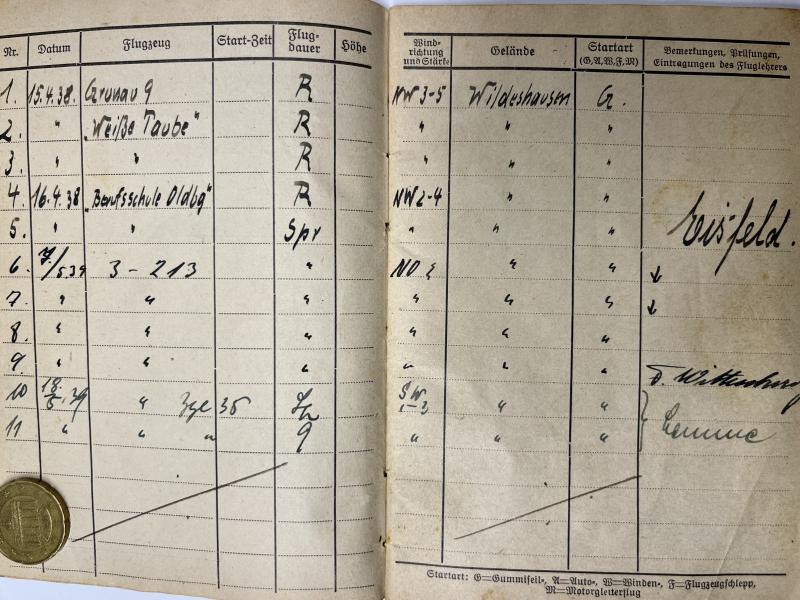 Nr. Datum Flugzeug Start-Zeit Flug-dauer Höhe Wind-richtung und Stärke Gelände Startart (G, A, W, F, M) Bemerkungen, Prüfungen, Eintragungen des Fluglehrers
1. 15.4.38. Grunau 9 R NW 3-5 Wildeshausen G.
2. " "Weiße Taube" R " " "
3. " " R " " "
4. 16.4.38 "Berufsschule Oldbg" R NW 2-4 " "
5. " " Spr " " " Eisfeld.
6. 7/5.39 3-213 " NO 2 " " ↓
7. " " " " " " ↓
8. " " " " " "
9. " " " " " " Wittenberg
10 18/6.39 " 35 SW 1-3 " "
11 " " " 9 " " "
Startart: G=Gummiseil-, A=Auto-, W=Winden-, F=Flugzeugschlepp,
M=Motorgleiterflug